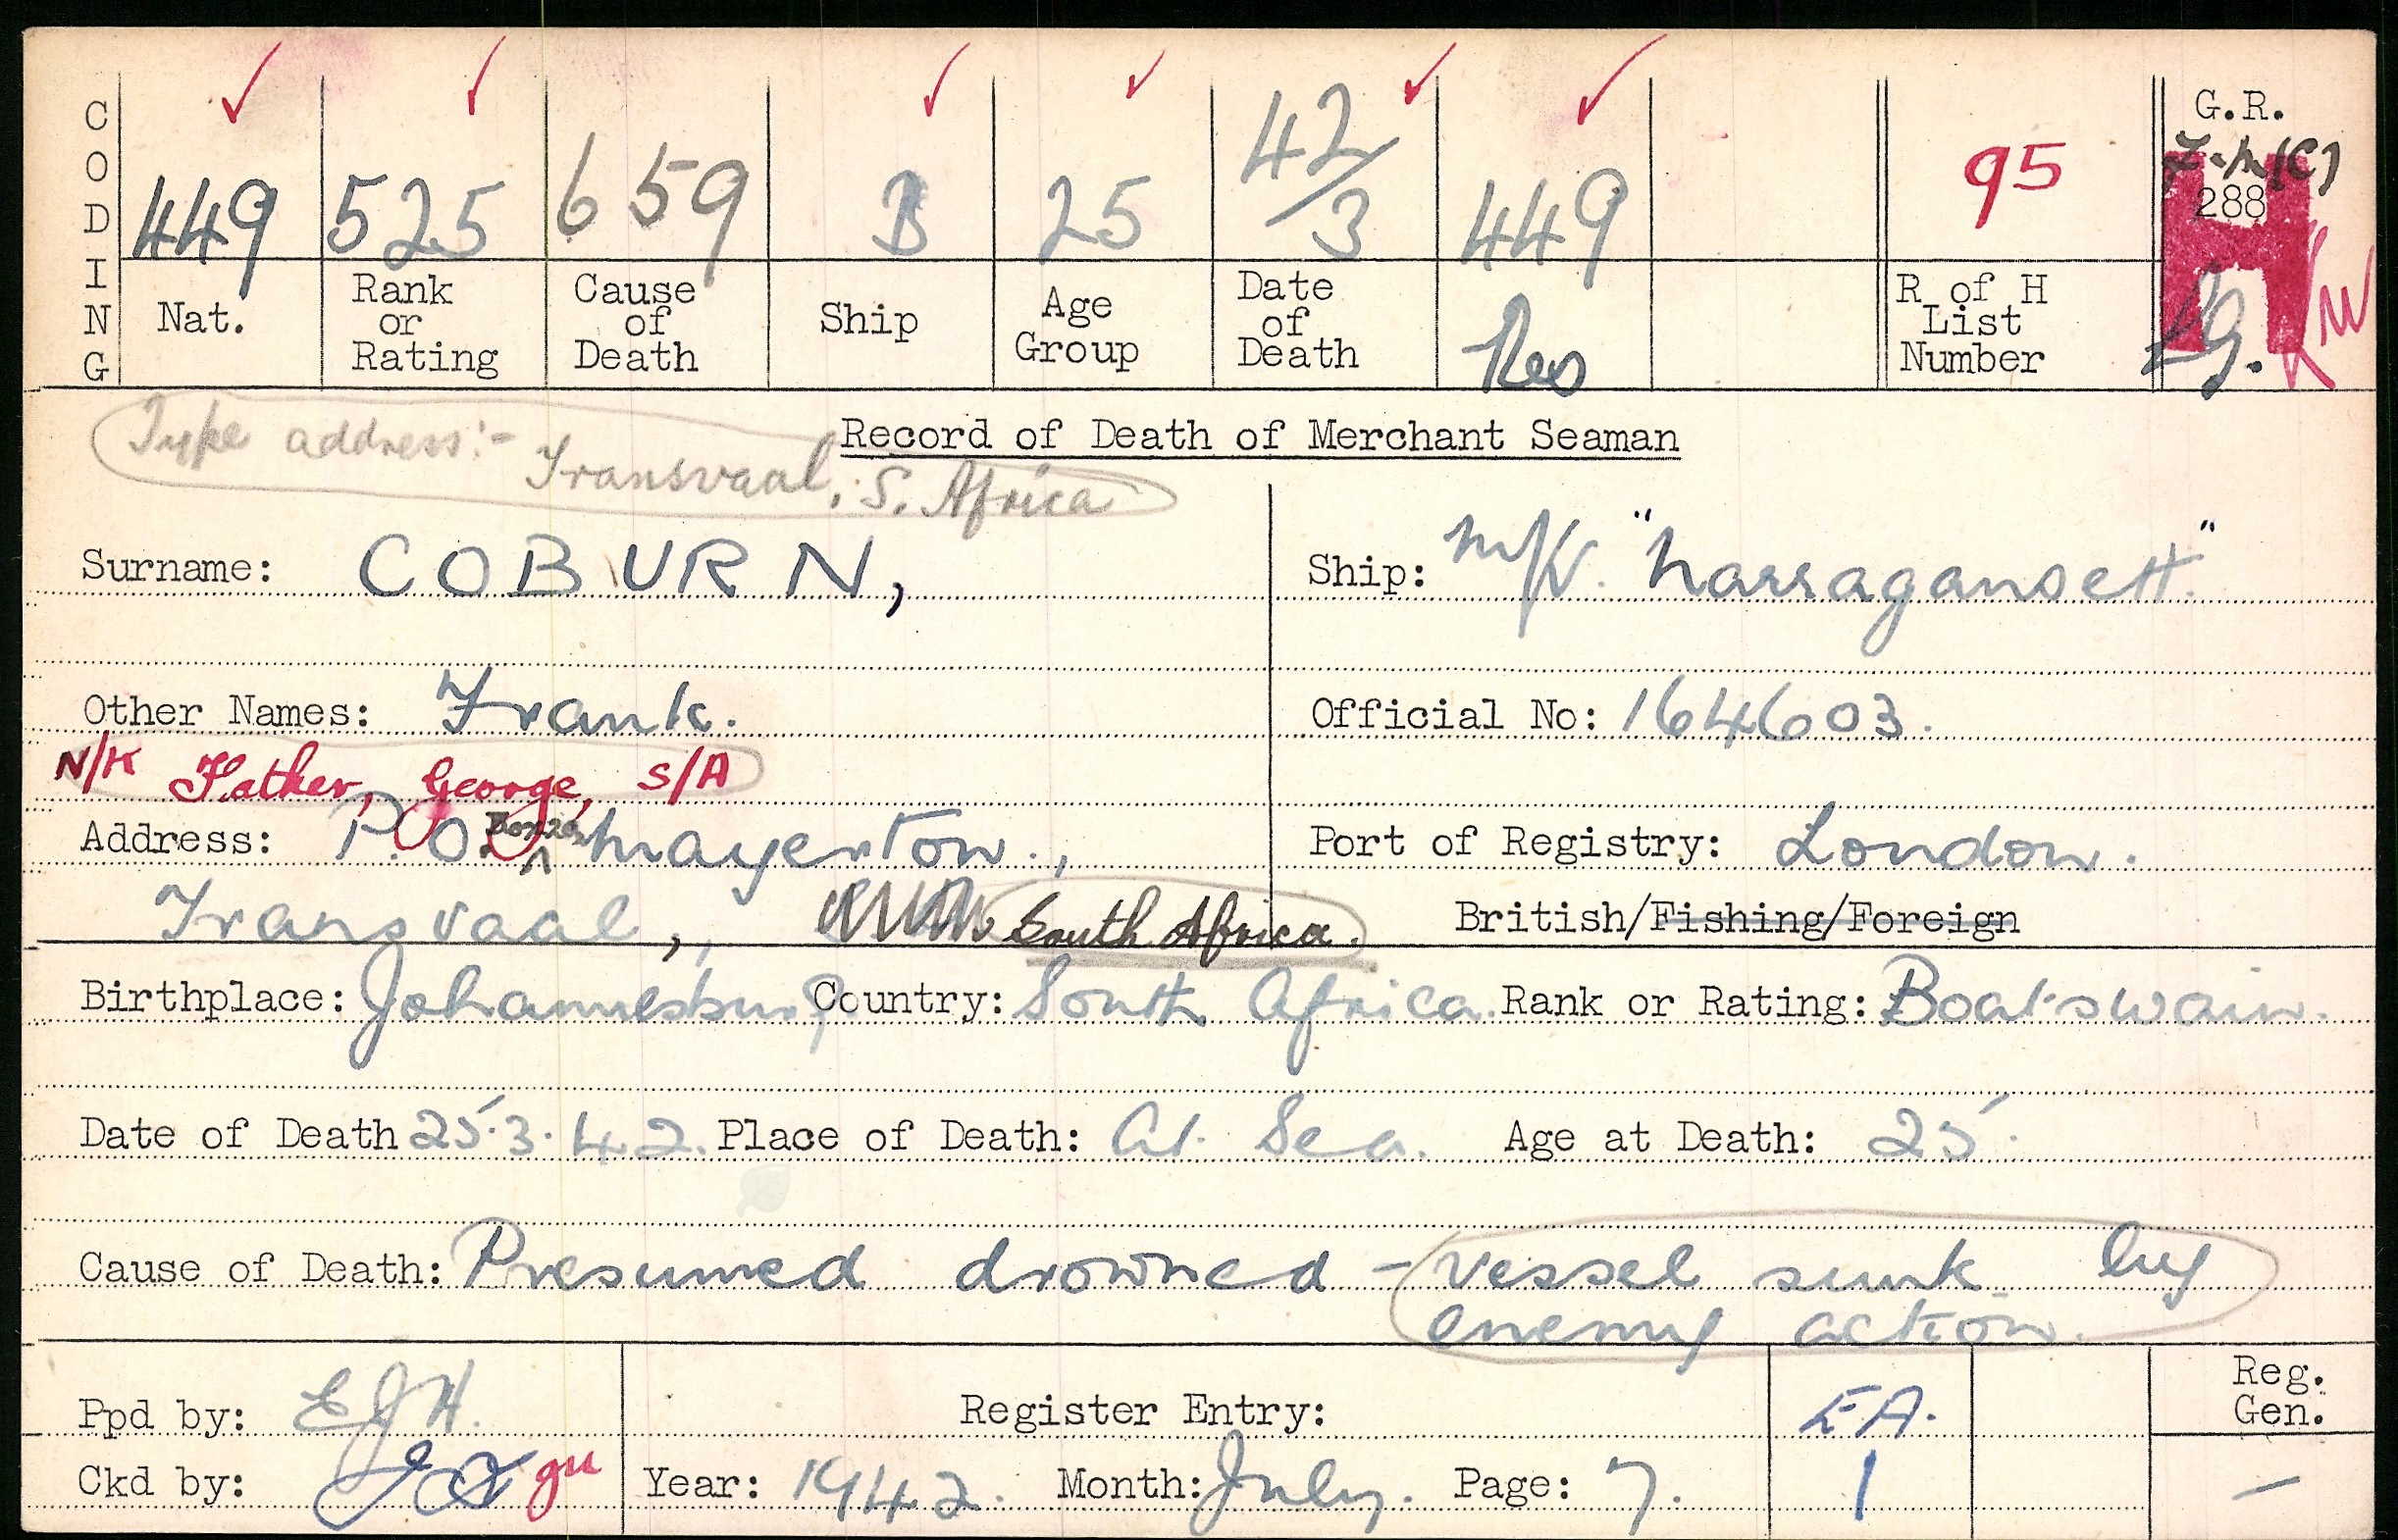 CODING
449 525 659 B 25 42/3 449 95 G.R.
288
H
Nat. Rank or Rating Cause of Death Ship Age Group Date of Death Res R of H List Number
Record of Death of Merchant Seaman
Type address:- Transvaal, S. Africa
Surname: COBURN,
Ship: M/V. "Narragansett"
Other Names: Frank.
Official No: 164603.
N/K Father, George, S/A
Address: P.O. Mayerton,
Port of Registry: London.
Transvaal, South Africa.
British/Fishing/Foreign
Birthplace: Johannesburg Country: South Africa. Rank or Rating: Boatswain.
Date of Death 25.3.42. Place of Death: At Sea. Age at Death: 25.
Cause of Death: Presumed drowned - vessel sunk by
enemy action.
Ppd by: EJH. Register Entry: E.A. Reg. Gen.
Ckd by: Year: 1942. Month: July. Page: 7. 1 —